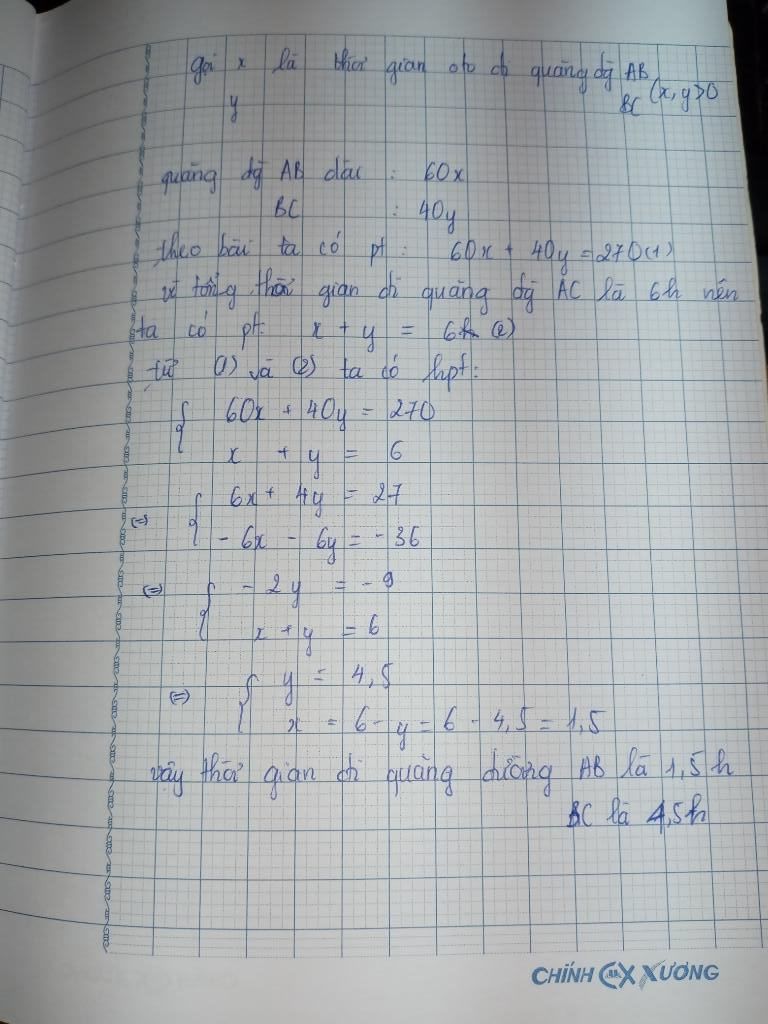 gọi x là thời gian oto đi quãng đg AB
y BC (x, y > 0
quãng đg AB dài : 60x
BC : 40y
theo bài ta có pt : 60x + 40y = 270 (1)
vì tổng thời gian đi quãng đg AC là 6h nên
ta có pt: x + y = 6h (2)
từ (1) và (2) ta có hpt:
{ 60x + 40y = 270
x + y = 6
(=) { 6x + 4y = 27
- 6x - 6y = - 36
(=) { - 2y = - 9
x + y = 6
(=) { y = 4,5
x = 6 - y = 6 - 4,5 = 1,5
vậy thời gian đi quãng đường AB là 1,5h
BC là 4,5h
CHÍNH XƯƠNG